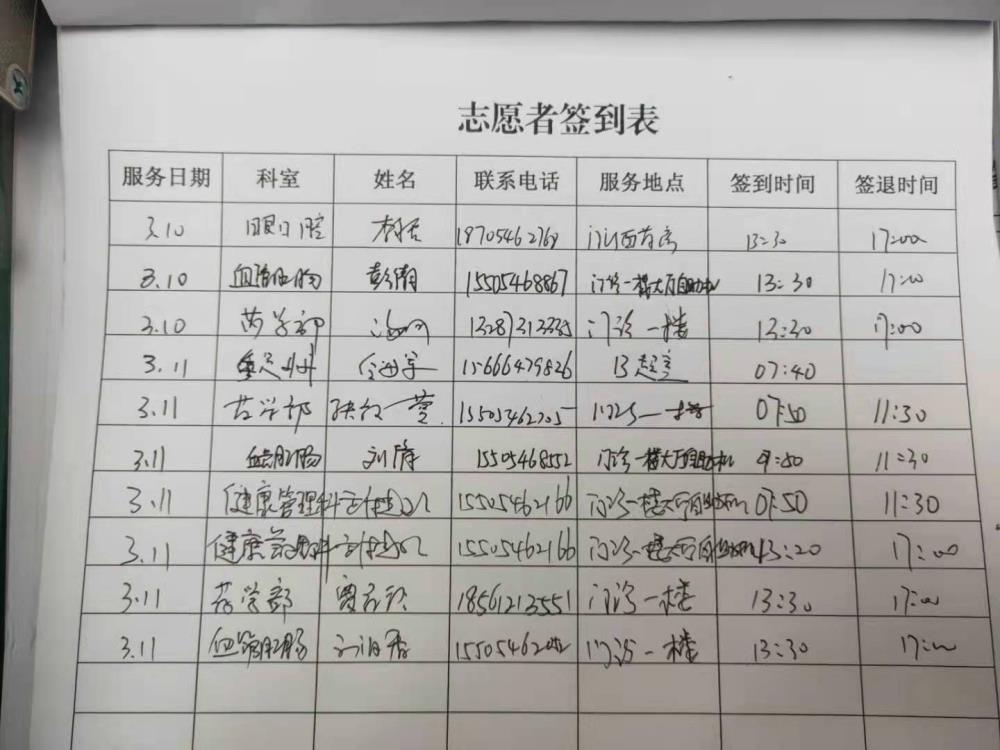 志愿者签到表
服务日期 科室 姓名 联系电话 服务地点 签到时间 签退时间
3.10 眼口腔 18705462768 门 13:30 17:00
3.10 血管胃肠 彭 15505468867 门诊一楼大厅自助机 13:30 17:00
3.10 药学部 13287313335 门诊一楼 13:30 17:00
3.11 15666479826 B超室 07:40
3.11 药学部 15505462705 门诊一楼 07:50 11:30
3.11 刘 15505468552 门诊一楼大厅自助机 11:30
3.11 健康管理科 15505462166 门诊一楼大厅自助机 07:50 11:30
3.11 健康管理科 15505462166 门诊一楼大厅自助机 13:20 17:00
3.11 药学部 18561213551 门诊一楼 13:30 17:00
3.11 刘 门诊一楼 13:30 17:00